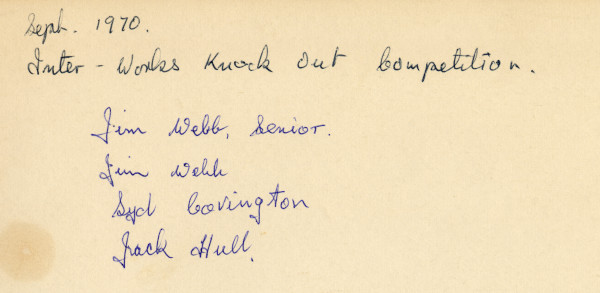 Sept. 1970.
Inter-Works Knock Out Competition.
Jim Webb, Senior.
Jim Webb
Syd Covington
Jack Hull.